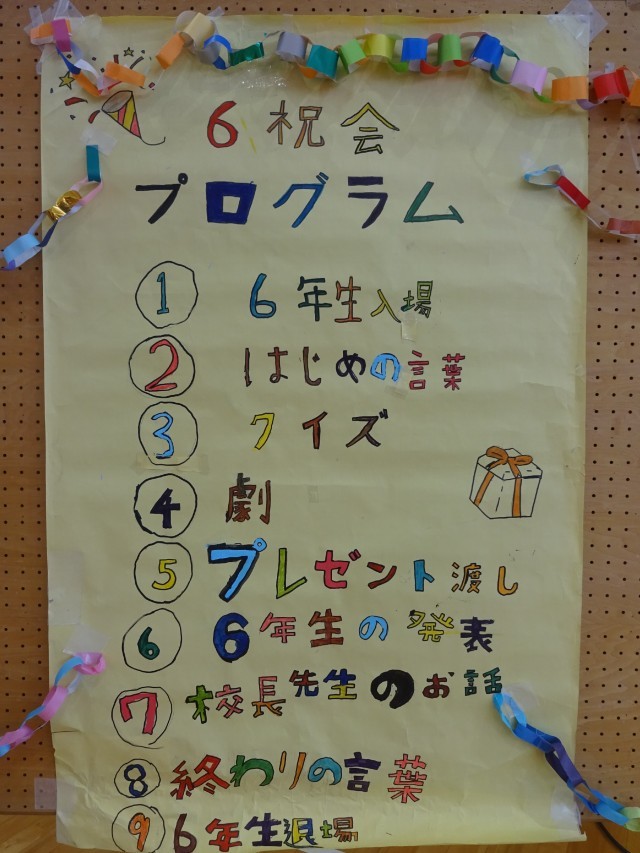 6祝会
プログラム
① 6年生入場
② はじめの言葉
③ クイズ
④ 劇
⑤ プレゼント渡し
⑥ 6年生の発表
⑦ 校長先生のお話
⑧ 終わりの言葉
⑨ 6年生退場